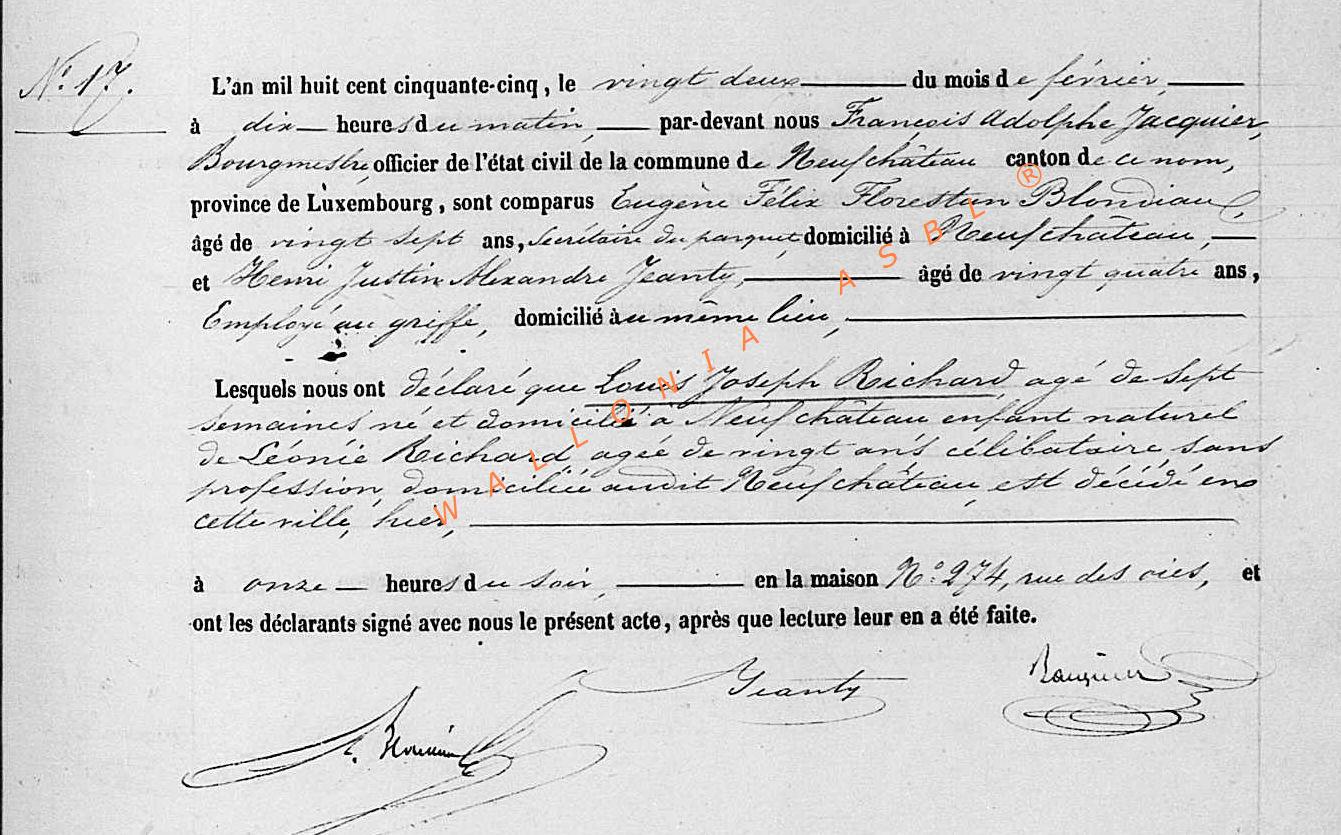 N° 17.
L'an mil huit cent cinquante-cinq, le vingt deux du mois de février,
à dix heures du matin, par-devant nous François Adolphe Jacquier,
Bourgmestre, officier de l'état civil de la commune de Neufchâteau canton de ce nom,
province de Luxembourg, sont comparus Eugène Félix Florestan Blondiau,
âgé de vingt sept ans, Secrétaire du parquet, domicilié à Neufchâteau,
et Henri Justin Alexandre Jeanty, âgé de vingt quatre ans,
Employé au griffe, domicilié au même lieu,
Lesquels nous ont déclaré que Louis Joseph Richard, agé de Sept
semaines né et domicilié à Neufchâteau enfant naturel
de Léonie Richard agée de vingt ans célibataire sans
profession, domiciliée audit Neufchâteau, est décédé en
cette ville, hier,
à onze heures du soir, en la maison N° 274, rue des oies, et
ont les déclarants signé avec nous le présent acte, après que lecture leur en a été faite.
Jeanty
WALLONIA ASBL ®